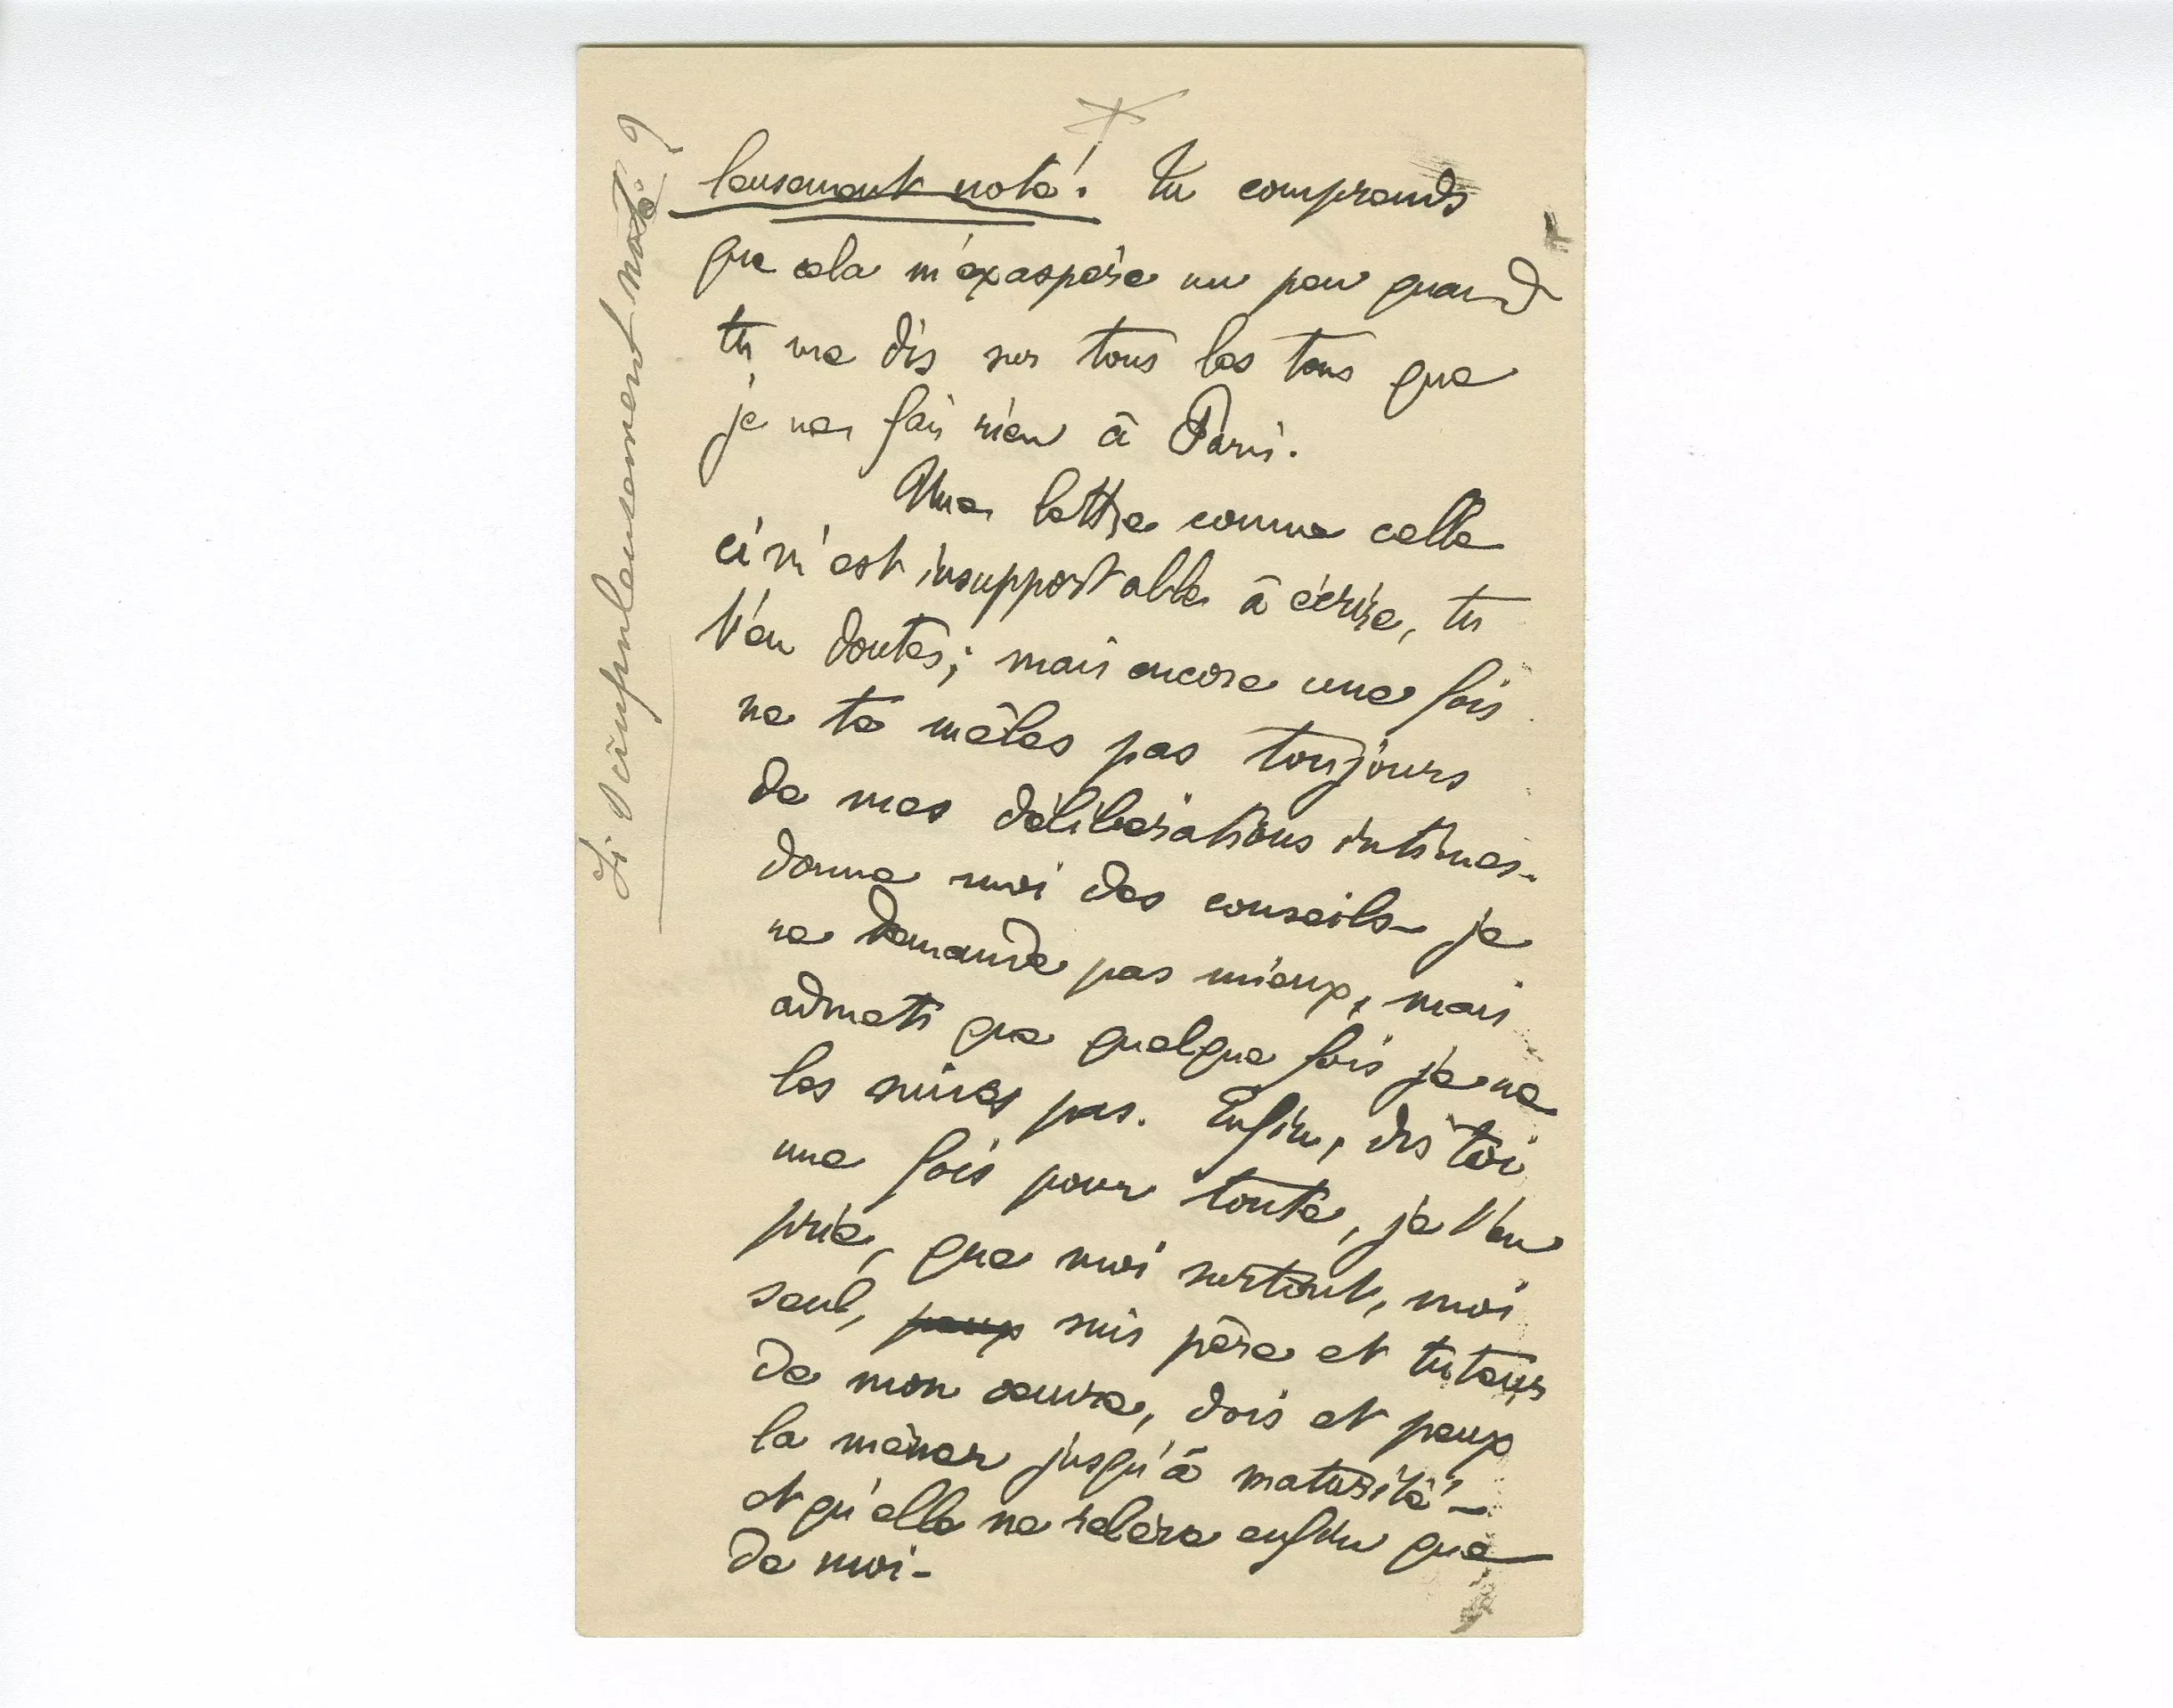 leusement noté! Tu comprends
que cela m'éxaspère un peu quand
tu me dis sur tous les tons que
je ne fais rien à Paris.
Une lettre comme celle
ci m'est insupportable à écrire, tu
t'en doutes; mais encore une fois
ne te mêles pas toujours
de mes délibérations intimes-
donne moi des conseils- je
ne demande pas mieux, mais
admets que quelque fois je ne
les suives pas. Enfin, dis toi
une fois pour toute, je t'en
prie, que moi surtout, moi
seul, peux suis père et tuteur
de mon œuvre, dois et peux
la mèner jusqu'à maturité-
et qu'elle ne relève enfin que
de moi-
Si scrupuleusement noté?